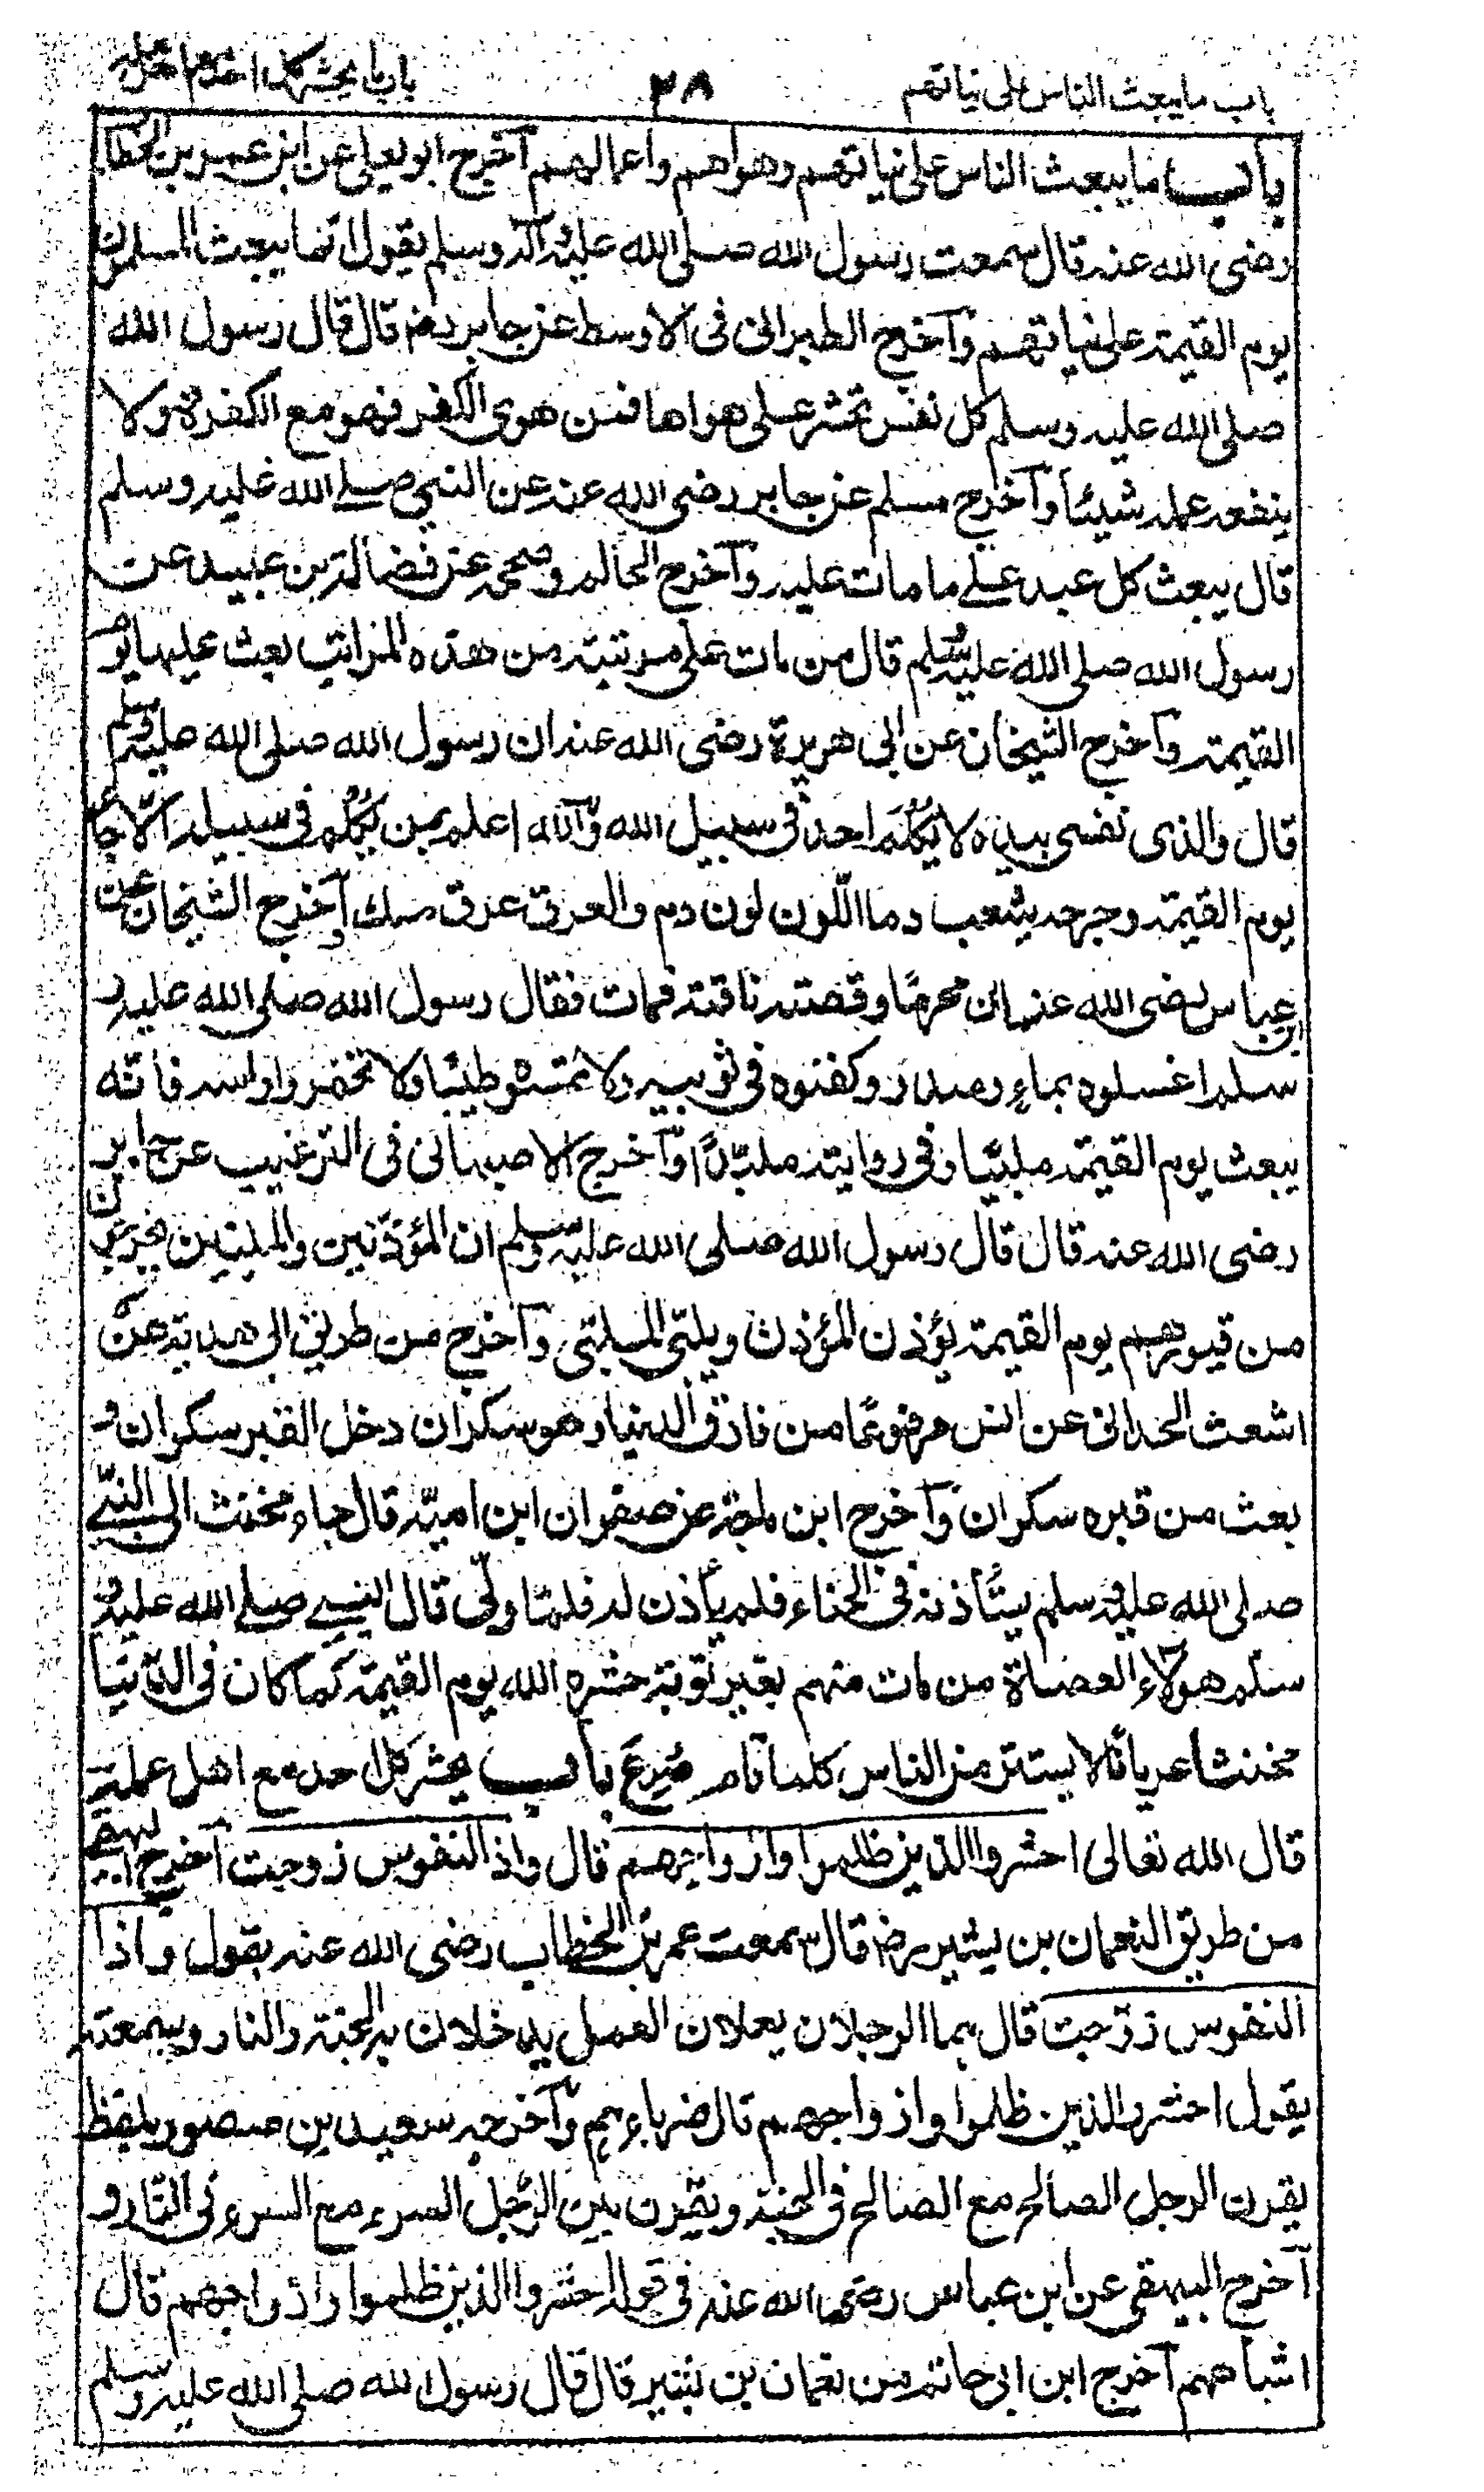 باب ما يبعث الناس على نياتهم
٣٨
باب يحشر كل احد مع اهل عمله
باب ما يبعث الناس على نياتهم وهواهم واعمالهم آخرج ابو يعلى عن ابن عمر بن الخطاب
رضى الله عنه قال سمعت رسول الله صلى الله عليه وآله وسلم يقول انما يبعث المسلمون
يوم القيمة على نياتهم وآخرج الطبرانى فى الاوسط عن جابر رضـ قال قال رسول الله
صلى الله عليه وسلم كل نفس تحشر على هواها فمن هوى الكفر فهو مع الكفرة ولا
ينفعه عمله شيئا وآخرج مسلم عن جابر رضى الله عنه عن النبى صلے الله عليه وسلم
قال يبعث كل عبد علے ما مات عليه وآخرج الحاكم وصححه عن فضالة بن عبيد عن
رسول الله صلى الله عليه وسلم قال من مات على مرتبة من هذه المراتب بعث عليها يوم
القيمة وآخرج الشيخان عن ابى هريرة رضى الله عنه ان رسول الله صلى الله عليه وسلم
قال والذى نفسى بيده لا يُكْلَم احد فى سبيل الله والله اعلم بمن يُكْلَم فى سبيله الا جاء
يوم القيمة وجرحه يثعب دما اللون لون دم والعرق عرق مسك وآخرج الشيخان عن
ابن عباس رضى الله عنه ان محرما وقصته ناقته فمات فقال رسول الله صلى الله عليه و
سلم اغسلوه بماء وسدر وكفنوه فى ثوبيه ولا تمسوه طيبا ولا تخمروا راسه فانه
يبعث يوم القيمة ملبيا وفى رواية ملبدا وآخرج الاصبهانى فى الترغيب عن جابر
رضى الله عنه قال قال رسول الله صلى الله عليه وسلم ان المؤذنين والملبين يخرجون
من قبورهم يوم القيمة يؤذن المؤذن ويلبى الملبى وآخرج من طريق ابى هدبة عن
اشعث الحدانى عن انس مرفوعا من فارق الدنيا وهو سكران دخل القبر سكران و
بعث من قبره سكران وآخرج ابن ماجة عن صفوان ابن امية قال جاء مخنث الى النبى
صلى الله عليه وسلم يستأذنه فى الغناء فلم يأذن له فلما ولى قال النبے صلے الله عليه و
سلم هولاء العصاة من مات منهم بغير توبة حشره الله يوم القيمة كما كان فى الدنيا
مخنثا عريانا لا يستتر من الناس كلما قام صُرِعَ باب يحشر كل احد مع اهل عمله
قال الله تعالى احشروا الذين ظلموا وازواجهم قال واذا النفوس زوجت آخرج البيهقى
من طريق النعمان بن بشير رضـ قال سمعت عمر بن الخطاب رضى الله عنه يقول واذا
النفوس زوجت قال هما الرجلان يعملان العمل يدخلان به الجنة والنار وسمعته
يقول احشروا الذين ظلموا وازواجهم قال ضرباءهم وآخرجه سعيد بن منصور بلفظ
يقرن الرجل الصالح مع الصالح فى الجنة ويقرن بين الرجل السوء مع السوء فى النار و
آخرج البيهقى عن ابن عباس رضى الله عنه فى قوله احشروا الذين ظلموا وازواجهم قال
اشباههم آخرج ابن ابى حاتم من نعمان بن بشير قال قال رسول الله صلى الله عليه وسلم